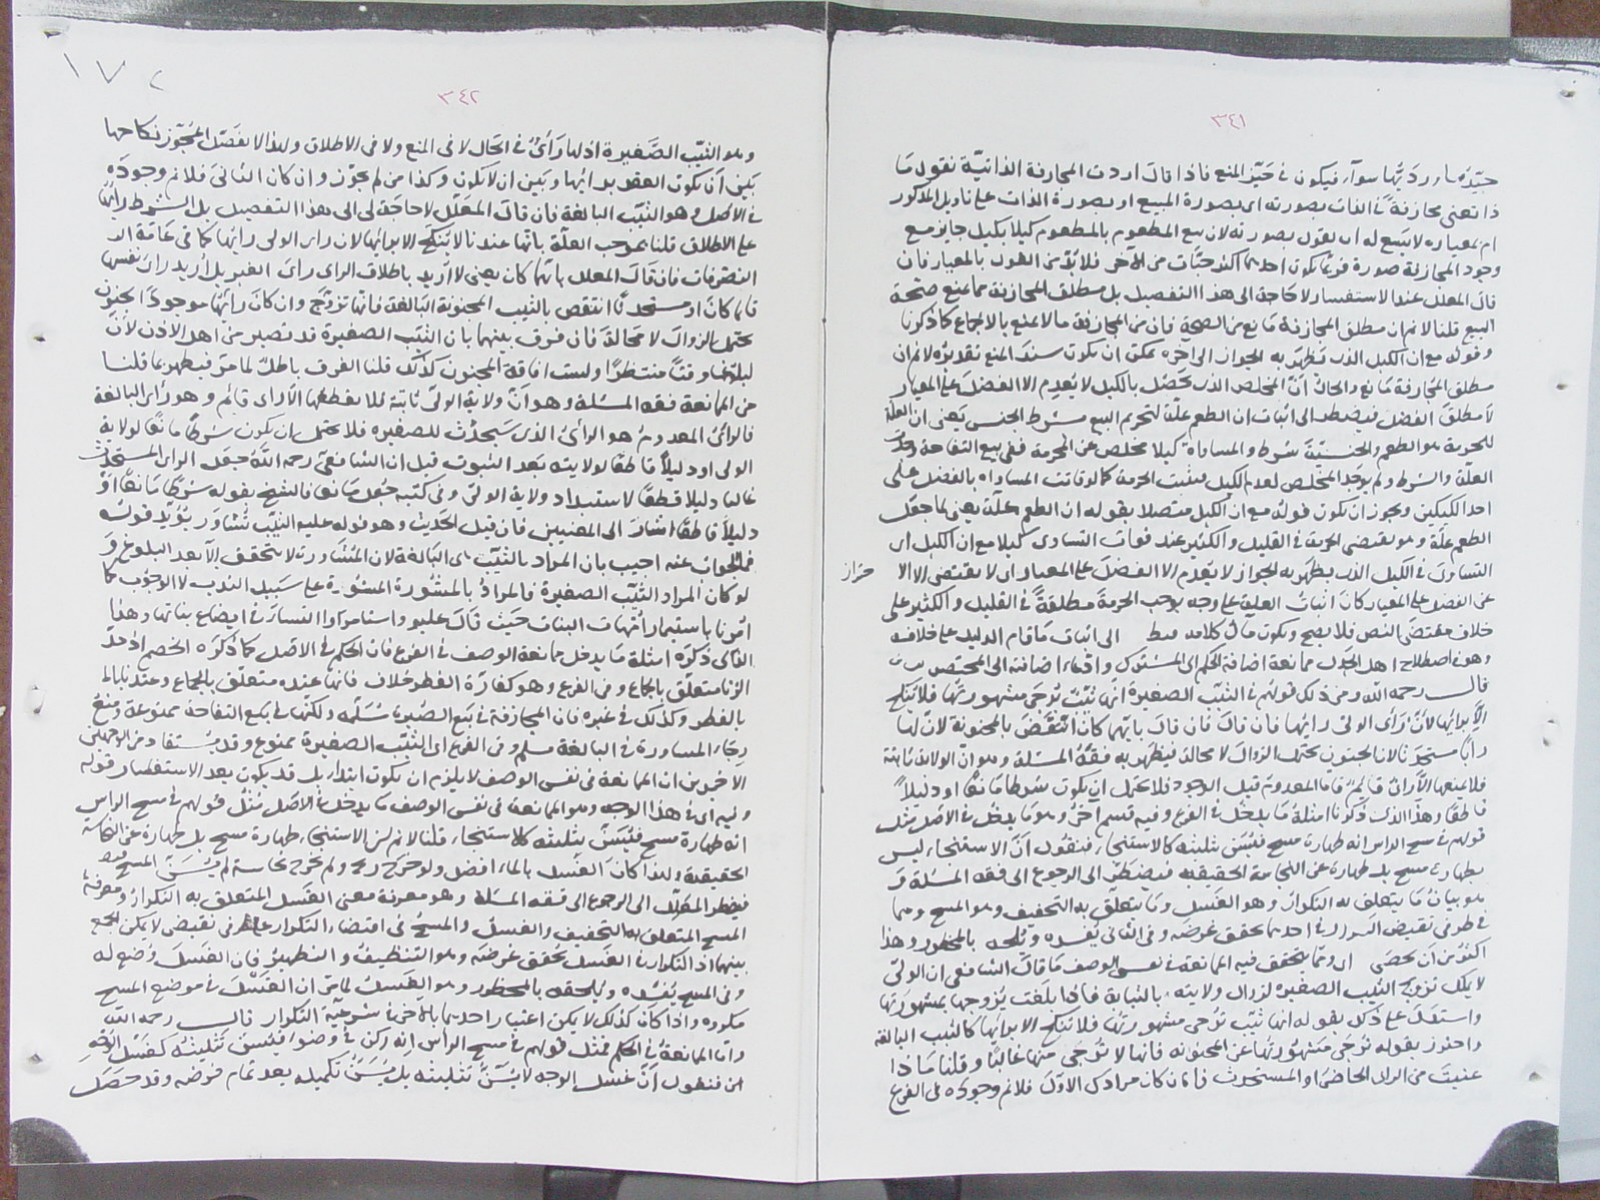 ٣٤١
جيّدها ورديّها سواء فيكون في حيّز المنع فاذا قال اردت المجازفة الذاتيّة نقول ما
ذا تعني مجازفة في الذات بصورته اى بصورة المبيع او بصورة الذات على تاويل المذكور
ام بمعياره لا يسع له ان يقول بصورته لان بيع المطعوم بالمطعوم كيلا بكيل جايز مع
وجود المجازفة صورة فربما يكون احدهما اكثر حبّات من الآخر فلا بدّ من القول بالمعيار فان
قال المعلل عند الاستفسار لا حاجة الى هذا التفصيل بل مطلق المجازفة مما يمنع صحّة
البيع قلنا لا نم ان مطلق المجازفة مانع من الصحة فان من المجازفة ما لا يمنع بالاجماع كما ذكرنا
وقوله مع ان الكيل الذى يظهر به الجواز الى اخره يمكن ان يكون سند المنع تقديره لا نم ان
مطلق المجازفة مانع والحال انّ المخلص الذى يحصل بالكيل لا يُعدِم الا الفضل على المعيار
لا مطلق الفضل فيضطر الى اثبات ان الطعم علّة لتحريم البيع بشرط الجنس يعنى ان العلّة
للحرمة هو الطعم والجنسيّة شرط والمساواة كيلا مخلص عن الحرمة ففي بيع التفاحة وجدت
العلّة والشرط ولم يوجد المخلص لعدم الكيل فيثبت الحرمة كما لو فاتت المساواة بالفضل على
احد الكيلين ويجوز ان يكون قوله مع ان الكيل متصلا بقوله ان الطعم علّة يعنى لما جعل
الطعم علّة وهو يقتضى الحرمة في القليل والكثير عند فوات التساوى كيلا مع ان الكيل اى
التساوى في الكيل الذى يظهر به الجواز لا يعدم الا الفضل على المعيار اى لا يقتضى الا الا
حتراز
عن الفضل على المعيار كان اثبات العلية على وجه يوجب الحرمة مطلقةً في القليل والكثير على
خلاف مقتضى النص فلا يصح ويكون مآل كلامه الى اثبات ما قام الدليل على خلافه
وهو في اصطلاح اهل الجدل ممانعة اضافة الحكم الى المشترك وادعاء اضافته الى المختص
قال رحمه الله ومن ذلك قولهم في الثيّب الصغيرة انها ثيّب تُرجى مشهورتها فلا تُنكح
الا برأيها لانّ رأى الولى رايها فان قال بايّهما كان انتقض بالمجنونة لان لها
رايا مستحدثا لان الجنون يحتمل الزوال لا محالة فيظهر به فقه المسئلة وهو انّ الولاية ثابتة
فلا يمنعها الا رأى قائم فاما المعدوم قبل الوجود فلا يحتمل ان يكون شرطا مانعًا او دليلًا
قاطعًا وهذا الذى ذكرنا امثلة ما يدخل في الفرع وفيه قسم آخر وهو ما يدخل في الاصل مثل
قولهم في مسح الراس انه طهارة مسح فيُسَنّ تثليثه كالاستنجاء فنقول انّ الاستنجاء ليس
بطهارة مسح بل طهارة عن النجاسة الحقيقيه فيضطر الى الرجوع الى فقه المسئلة و
هو بيان ما يتعلق به التكرار وهو الغسل وما يتعلّق به التخفيف وهو المسح وهما
في طرفى نقيض التكرار في احدهما يحقق غرضه وفى الثانى يُفسده ويلحقه بالمحظور وهذا
اكثر من ان يحصى اى ومما يتحقق فيه الممانعة في نفس الوصف ما قال الشافعى ان الولىّ
لا يملك تزويج الثيب الصغيرة لزوال ولايته بالثيابة فاذا بلغت يزوجها بمشهورتها
واستدل على ذلك بقوله انها ثيّب تُرجى مشهورتها فلا تنكح الا برايها كالثيب البالغة
واحترز بقوله تُرجى مشهورتها عن المجنونة فانها لا تُرجى منها غالبًا وقلنا ماذا
عنيت من الراى الحاضر او المستحدث فان كان مرادك الاول فلا نم وجوده فى الفرع
١٧٢
٣٤٢
وهو الثيّب الصَّغيرة اذ لها رأىٌ في الحال لا فى المنع ولا فى الاطلاق ولهذا لا يفصل المجوّز نكاحها
بين أن يكون العقد برأيها وبين ان لا يكون وكذا من لم يجوّز وان كان الثانى فلا نم وجودَه
في الاصل وهو الثيّب البالغة فان قال المعلّل لا حاجة لى الى هذا التفصيل بل الشرط رأيها
على الاطلاق قلنا بموجب العلّة بانها عندنا لا تنكح الا برأيها لان راى الولى رايها كما فى عامّة
التصرفات فان قال المعلل بايّهما كان يعنى لا اُريد باطلاق الراى راىَ الغير بل اُريد راىَ نفسها
قايما كان او مستحدثا انتقض بالثيب المجنونة البالغة فانّها تزوّج وان كان رأيها موجودا لجنون
يحتمل الزوال لا محالة فان فرق بينهما بان الثيّب الصغيرة قد تصير من اهل الاذن لانّ
لبلوغها وقتًا منتظرًا وليست افاقة المجنون كذلك قلنا الفرق باطلٌ لما مرّ فيظهر بما قلنا
من الممانعة فقه المسئلة وهو انّ ولاية الولىّ ثابتة فلا يقطعها الّا راى قائم وهو رأى البالغة
فالرأىُ المعدوم هو الرأىُ الذى سَيحدُث للصغيره فلا يحتمل ان يكون شرطًا مانعًا لولاية
الولى او دليلًا قاطعًا لولايته بعد الثبوت قيل ان الشافعى رحمه اللّه جعل الراى المستحدث
غالبا دليلا قطعًا لاستبداد ولاية الولىّ وفى كتبه جعل مانعا فالشيخ بقوله شرطًا مانعًا او
دليلاً قاطعًا اشار الى المعنيين فان قيل الحديث وهو قوله عليه الثيّب تُشاوَر يُؤيّد قولهُ
فما الجواب عنه اجيب بان المراد بالثيّب هى البالغة لان المشاورة لا تتحقق الّا بعد البلوغ و
لو كان المراد الثيّب الصغيرة فالمراد بالمشورة المشورة على سَبيل الندب لا الوجوب كما
اُمِرنا باستيمار اُمّهات البنات حَيثُ قالَ عليه واستامروا النساءَ فى ابضاع بناتها وهذا
الذى ذكره امثلة ما يدخل ممانعة الوصف فى الفرع فان الحكم فى الاصل كما ذكره الخصم اذ حدّ
الزنا متعلّق بالجماع وفى الفرع وهو كفارة الفطر خلاف فانها عنده متعلّق بالجماع وعندنا
بالفطر وكذلك فى غيره فان المجازفة فى بَيع الصُبرة مُسَلّمة ولكنّها فى بَيع التفاحة ممنوعة ومنعُ
رجاء المشاورة فى البالغة مسلم وفى الفرع اى الثيّب الصغيرة ممنوع وقد يُستفاد من الوجهين
الاخيرين ان الممانعة فى نفس الوصف لا يلزم ان يكون ابتداء بل قد يكون بعد الاستفسار قوله
وفيه اى فى هذا الوجه وهو الممانعة فى نفس الوصف ما يدخل فى الاصل مثل قولهم فى مسح الراس
انه طهارة مسح فيُسَنّ تثليثه كالاستنجاء قلنا لا نم ان الاستنجاء طهارة مسح بل طهارة عن النجاسة
الحقيقية ولهذا كان الغسل بالماء افضل ولو خرج ريح ولم تخرج نجاسة لم يُسَنّ المسح
فيضطر المعلل الى الرجوع الى فقه المسئلة وهو معرفة معنى الغسل المتعلق به التكرار ومعرفة
المسح المتعلق به التخفيف والغسل والمسح فى اقتضاء التكرار على طرفى نقيض لا يمكن الجمع
بينهما اذ التكرار فى الغسل يحقق غرضه وهو التنظيف والتطهير فان الغسل وُضع له
وفى المسح يُفسده ويلحقه بالمحظور وهو الغسل لما مرّ ان الغَسْل فى موضع المسح
مكروه واذا كان كذلك لا يمكن اعتبار احدهما بالآخر فى شرعيّة التكرار قال رحمه الله
وامّا الممانعة فى الحكم فمثل قولهم فى مسح الرأس انه ركن فى وضوء فيُسَنّ تثليثُه كغسل الوجه
فنقول انّ غسل الوجه لا يُسَنّ تثليثه بل يُسَنّ تكميله بعد تمام فرضه وقد حَصَلَ